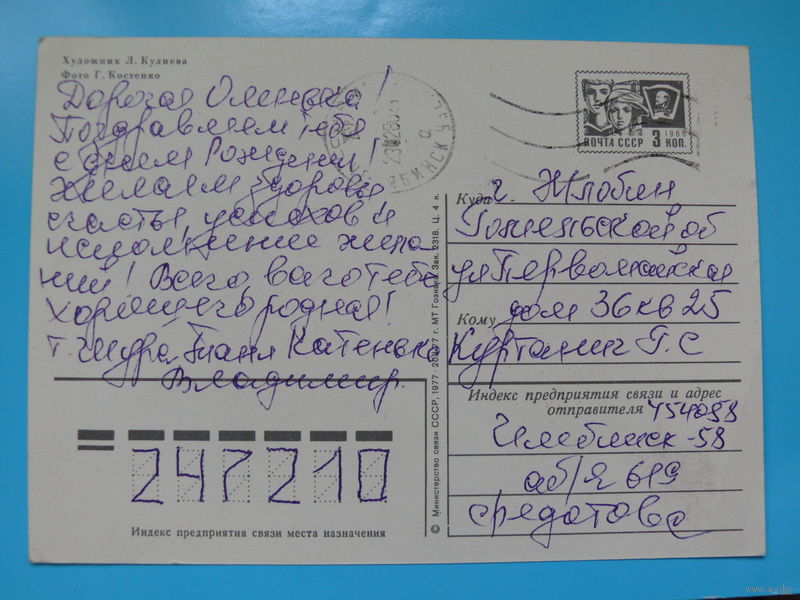 Художник Л. Кулиева
Фото Г. Костенко
Дорогая Оленька!
Поздравляем тебя
с днем Рождения!
Желаем здоровья
счастья, успехов и
исполнение жела
ний! Всего, всего тебе
хорошего родная!
Таня Катенька
Владимир.
23 1280
ПОЧТА СССР 3 КОП.
1966
Куда г. Жлобин
Гомельской об
ул Первомайская
дом 36 кв 25
Кому
Г. С
Индекс предприятия связи и адрес
отправителя 454058
Челябинск-58
аб/я 619
247210
Индекс предприятия связи места назначения
© Министерство связи СССР, 1977 МТ Гознака. Зак. 2318. Ц. 4 к.
www.ay.by